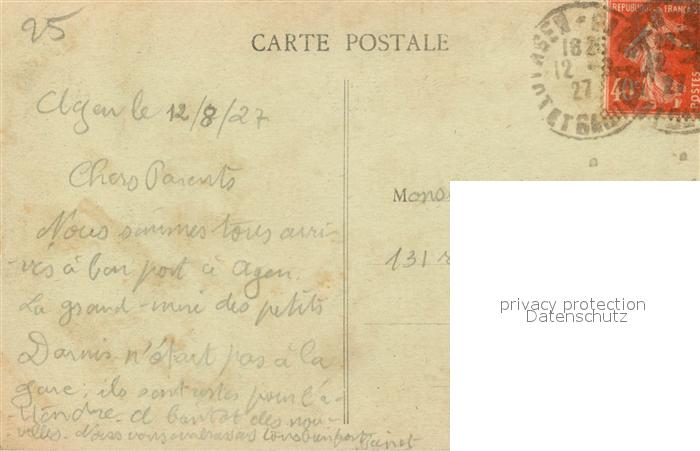 25
CARTE POSTALE
REPUBLIQUE FRANÇAISE
POSTES
40
AGEN
LOT ET GARONNE
12 -8
27
Agen le 12/8/27
Chers Parents
Nous sommes tous arri-
-vés à bon port à Agen.
La grand-mère des petits
Darnis n'était pas à la
gare; ils sont restés pour l'a-
-ttendre. A bientôt des nou-
-velles. Nous vous embrassons tous bien fort
131 r
privacy protection
Datenschutz